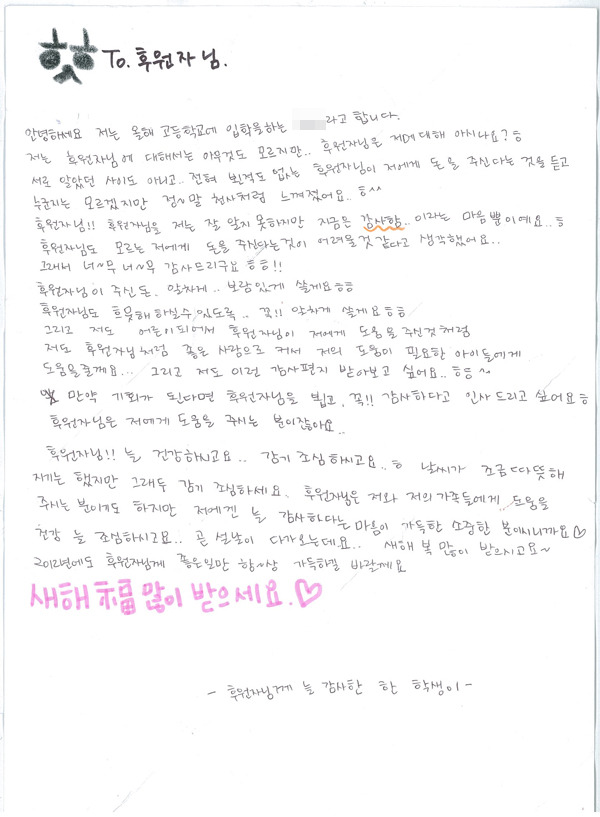 핫 To. 후원자님.
안녕하세요 저는 올해 고등학교에 입학을하는 라고 합니다.
저는 후원자님에 대해서는 아무것도 모르지만.. 후원자님은 저에대해 아시나요?ㅎ
서로 알았던 사이도 아니고.. 전혀 뵌적도 없는 후원자님이 저에게 돈을 주신다는 것을 듣고
누군지는 모르겠지만 정~말 천사처럼 느껴졌어요..ㅎ^^
후원자님!! 후원자님을 저는 잘 알지 못하지만 지금은 감사함.. 이라는 마음뿐이에요..ㅎ
후원자님도 모르는 저에게 돈을 주신다는것이 어려울것 같다고 생각했어요..
그래서 너~무 너~무 감사드리구요 ㅎㅎ!!
후원자님이 주신 돈. 알차게.. 보람있게 쓸게요ㅎㅎ
후원자님도 흐뭇해 하실수 있도록.. 꼭!! 알차게 쓸게요ㅎㅎ
그리고 저도 어른이되어서 후원자님이 저에게 도움을 주신것처럼
저도 후원자님처럼 좋은 사람으로 커서 저의 도움이 필요한 아이들에게
도움을줄게요... 그리고 저도 이런 감사편지 받아보고 싶어요..ㅎㅎ~
만약 기회가 된다면 후원자님을 뵙고, 꼭!! 감사하다고 인사드리고 싶어요ㅎ
후원자님은 저에게 도움을 주시는 분이잖아요..
후원자님!! 늘 건강하시고요.. 감기 조심하시고요..ㅎ 날씨가 조금따뜻해
지기는 했지만 그래두 감기 조심하세요. 후원자님은 저와 저의가족들에게.. 도움을
주시는 분이기도 하지만 저에겐 늘 감사하다는 마음이 가득한 소중한 분이시니까요♡
건강 늘 조심하시고요.. 곧 설날이 다가오는데요.. 새해 복 많이 받으시고요~
2012년에도 후원자님께 좋은일만 항~상 가득하길 바랄게요
새해 福 많이 받으세요.♡
- 후원자님께 늘 감사한 한 학생이 -